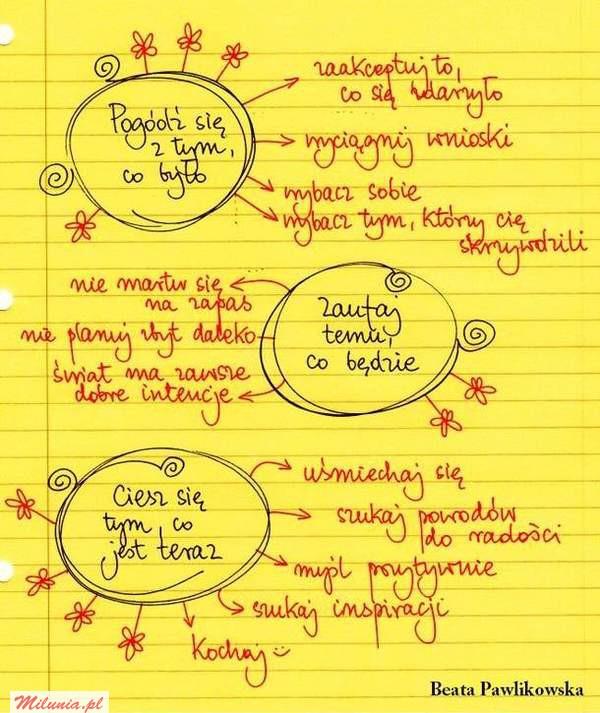 Pogódź się
z tym,
co było
zaakceptuj to,
co się zdarzyło
wyciągnij wnioski
wybacz sobie
wybacz tym, którzy cię
skrzywdzili
Zaufaj
temu,
co będzie
nie martw się
na zapas
nie planuj zbyt daleko
świat ma zawsze
dobre intencje
Ciesz się
tym, co
jest teraz
uśmiechaj się
szukaj powodów
do radości
myśl pozytywnie
szukaj inspiracji
kochaj
Milunia.pl
Beata Pawlikowska